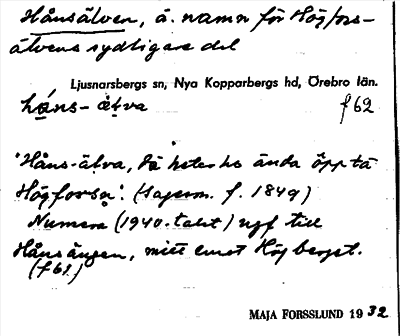 Hånsälven, å. namn för Högfors-
älvens sydligare del
Ljusnarsbergs sn, Nya Kopparbergs hd, Örebro län.
håns-äᶅva f62
"Håns-äᶅva, dä heter ho ända öpp tä
Högforsn". (Sagesm. f. 1849)
Numera (1940-talet) upp till
Hånsängen, mitt emot Högberget.
(f61.)
MAJA FORSSLUND 1932